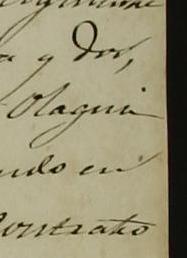 a y dos,
Olaguin
ndo en
Contrato